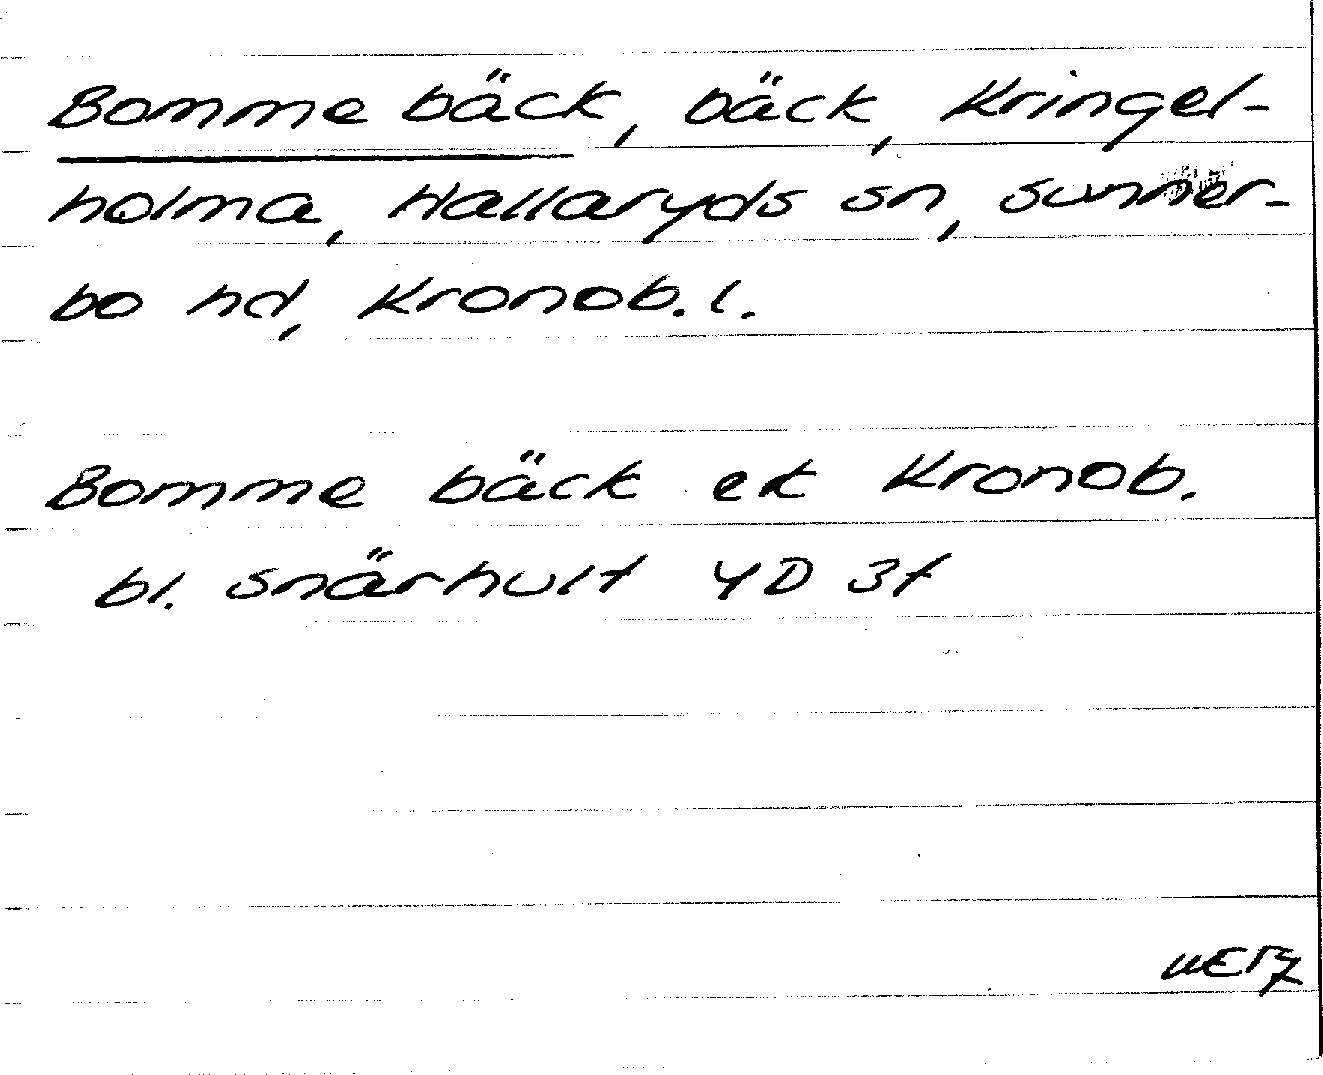 Bomme bäck, bäck, Kringel-
holma, Hallaryds sn, Sunner-
bo hd, Kronob. l.
Bomme bäck ek Kronob.
bl. Snärhult 4D 3f